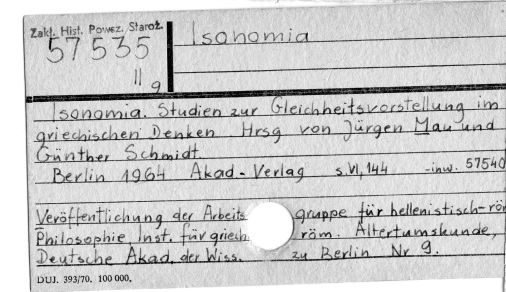 Zakł. Hist. Powsz. Staroż.
57535
II g
Isonomia
Isonomia. Studien zur Gleichheitsvorstellung im
griechischen Denken Hrsg von Jürgen Mau und
Günther Schmidt
Berlin 1964 Akad-Verlag s. VI, 144 -inw. 57540
Veröffentlichung der Arbeitsgruppe für hellenistisch-röm
Philosophie Inst. für griech. röm. Altertumskunde,
Deutsche Akad. der Wiss. zu Berlin Nr 9.
DUJ. 393/70. 100 000.